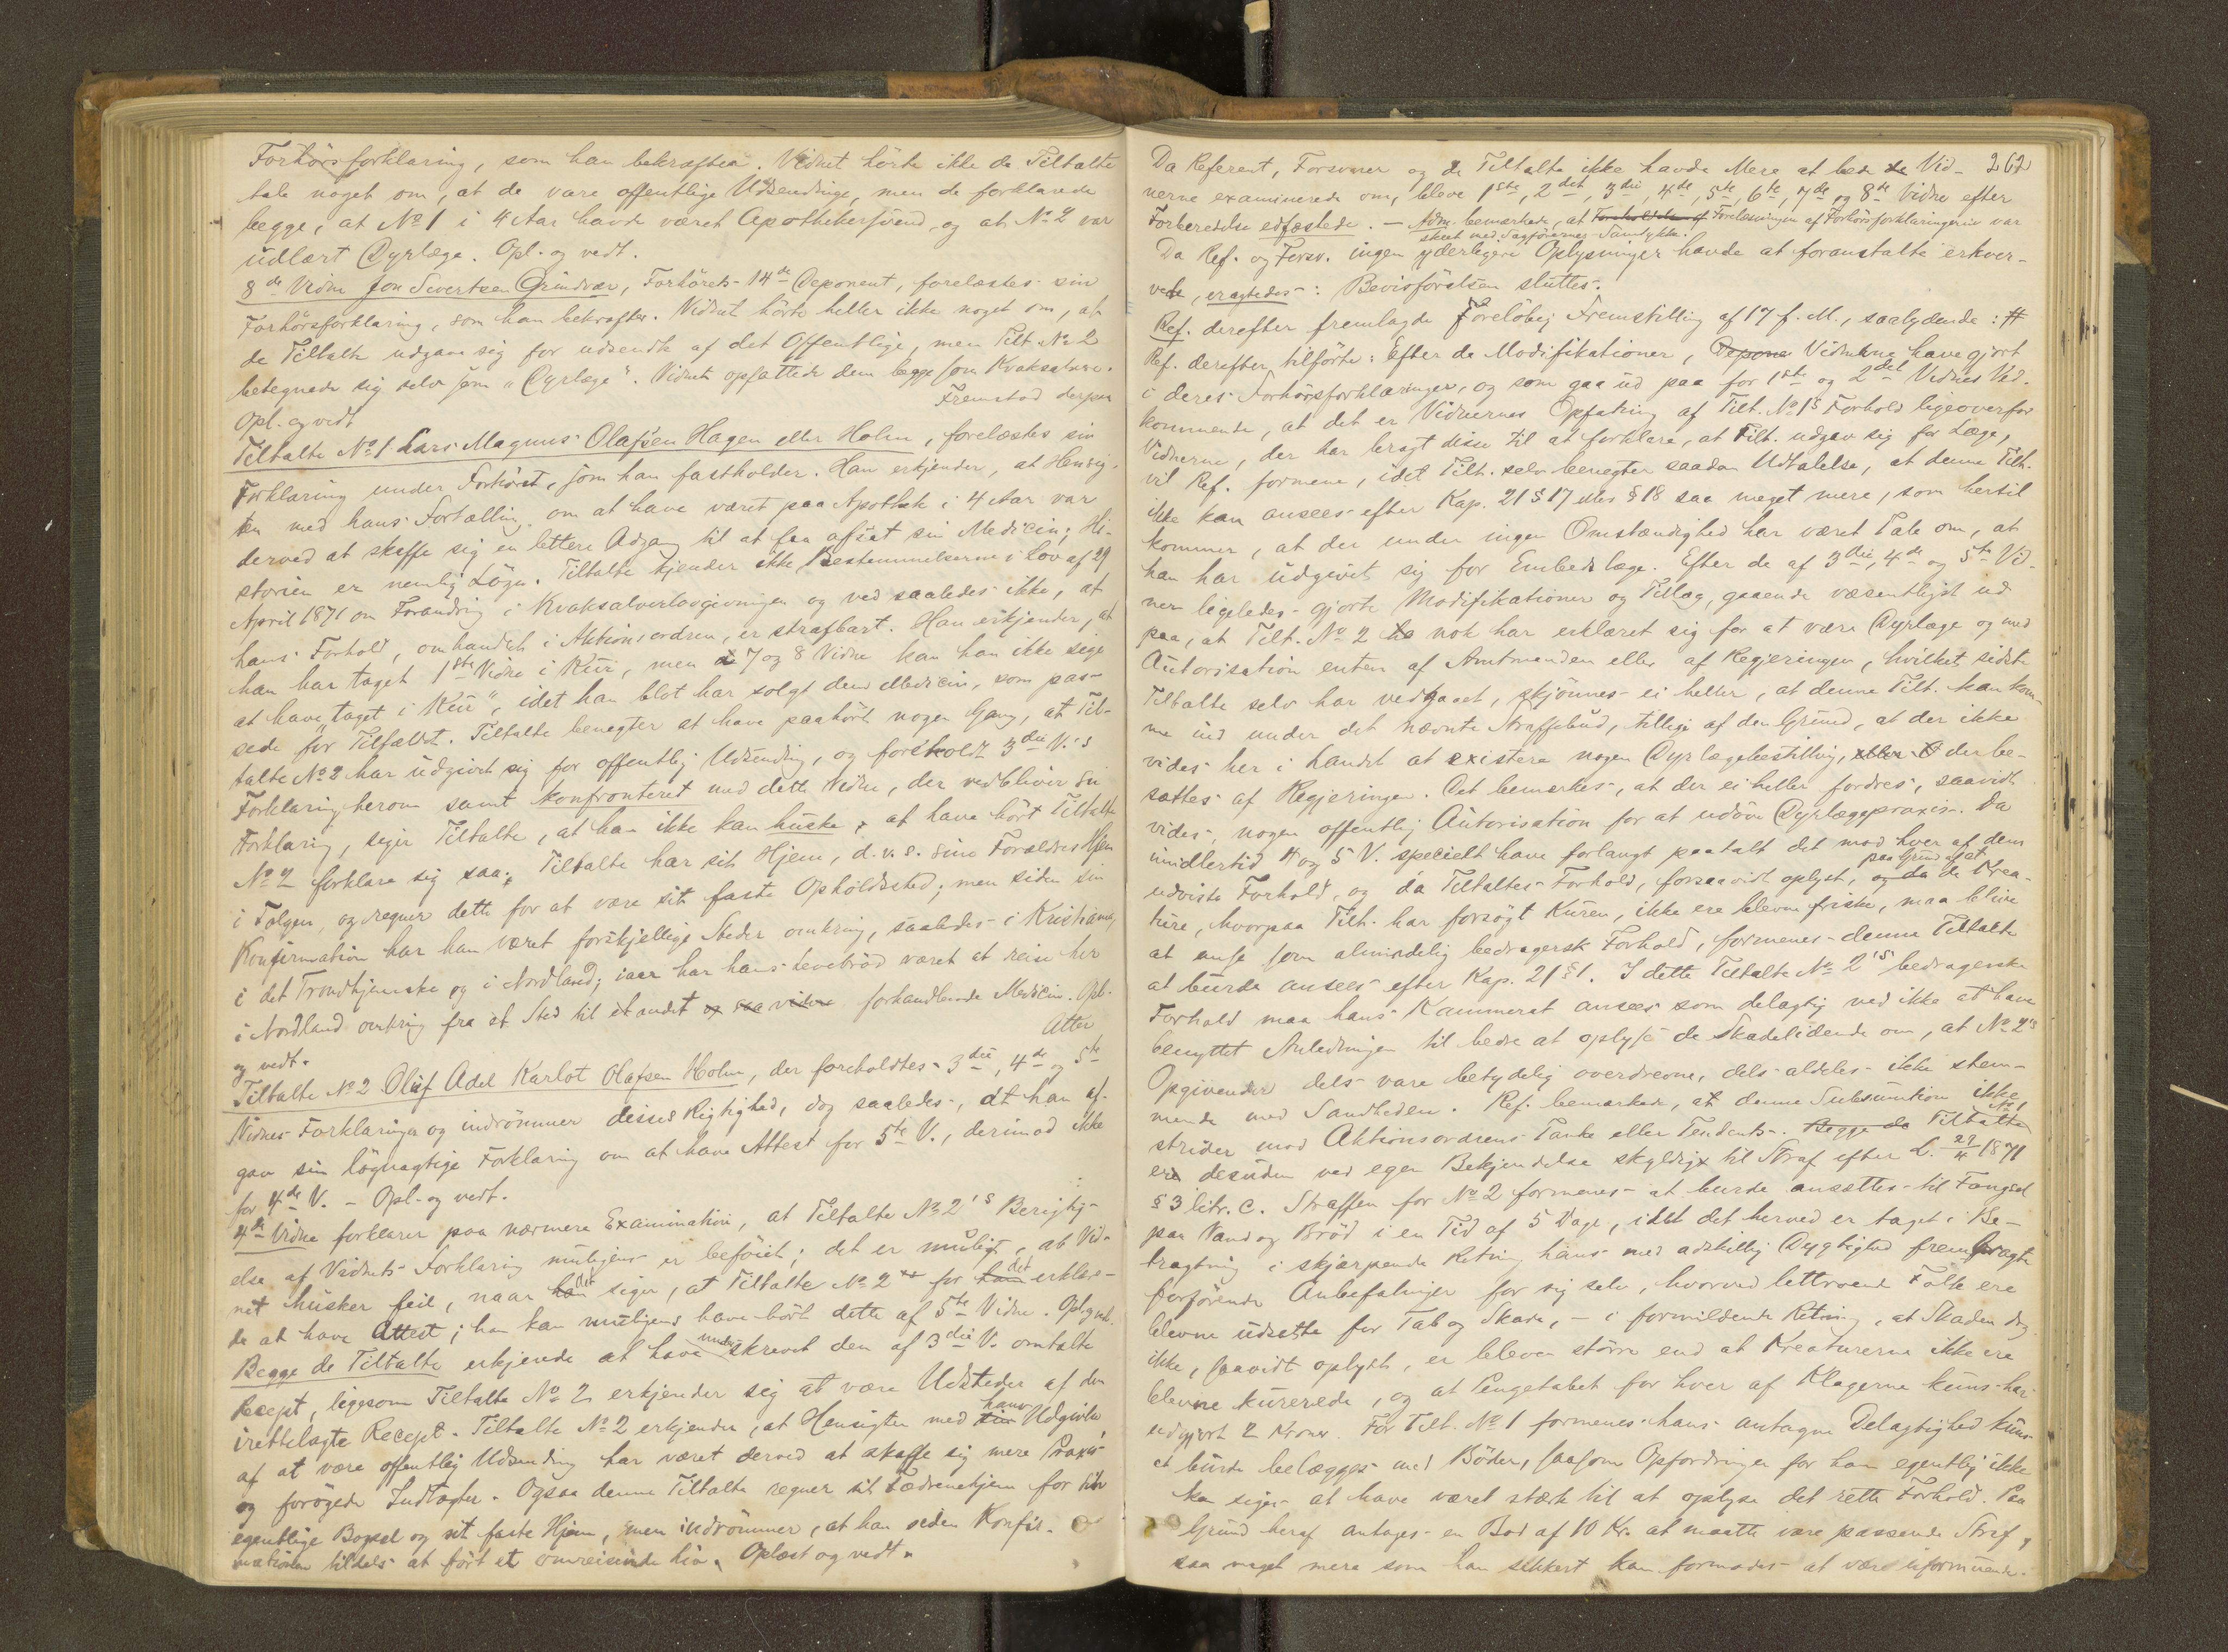 Forhörsforklaring, som han bekræfter. Vidnet hörte ikke de Tiltalte
tale noget om, at de vare offentlige Udsendinge, men de forklarede
begge, at No 1 i 4 Aar havde været Apothekersvend, og at No 2 var
udlært Dyrlæge. Opl. og vedt.
8de Vidne Jon Sivertsen Grindvær, Forhörets 14de Deponent, forelæstes sin
Forhörsforklaring, som han bekræfter. Vidnet hörte heller ikke noget om, at
de Tiltalte udgave sig for udsendte af det Offentlige, men Tilt. No 2
betegnede sig selv som "Dyrlæge". Vidnet opfattede dem begge som Kvaksalvere.
Opl. og vedt. Fremstod derpaa
Tiltalte No 1 Lars Magnus Olafsen Hagen eller Holm, forelæstes sin
Forklaring under Forhöret, som han fastholder. Han erkjender, at Hensig-
ten med hans Fortælling om at have været paa Apothek i 4 Aar var
derved at skaffe sig en lettere Adgang til at faa afsat sin Medicin; Hi-
storien er nemlig Lögn. Tiltalte kjender ikke Bestemmelserne i Lov af 29
April 1871 om Forandring i Kvaksalverlovgivningen og ved saaledes ikke, at
hans Forhold, omhandlet i Aktionsordren, er strafbart. Han erkjender, at
han har taget 1ste Vidne i Kur, men 7 og 8 Vidne kan han ikke sige
at have taget i "Kur", idet han blot har solgt dem Medicin, som pas-
sede for Tilfældet. Tiltalte benegter at have paahört nogen Gang, at Til-
talte No 2 har udgivet sig for offentlig Udsending, og foreholdt 3die V.'s
Forklaring herom samt konfronteret med dette Vidne, der vedbliver sin
Forklaring, siger Tiltalte, at han ikke kan huske, at have hört Tiltalte
No 2 forklare sig saa. Tiltalte har sit Hjem, d.v.s. sine Forældres Hjem
i Folgen, og regner dette for at være sit faste Opholdssted; men siden sin
Konfirmation har han været forskjellige Steder omkring, saaledes i Kristiania,
i det Trondhjemske og i Nordland; iaar har hans Levebröd været at reise her
i Nordland omkring fra et Sted til et andet og saa videre forhandlende Medicin. Opl.
og vedt. Atter
Tiltalte No 2 Oluf Adel Karlot Olafsen Holm, der foreholdtes 3die, 4de og 5te
Vidnes Forklaringer og indrömmer disses Rigtighed, dog saaledes, at han af-
gav sin lögnagtige Forklaring om at have Attest for 5te V., derimod ikke
for 4de V. - Opl. og vedt.
4de Vidne forklarer paa nærmere Examination, at Tiltalte No 2's Berigtig-
else af Vidnets Forklaring muligens er beföiet; det er muligt, at Vid-
net husker feil, naar det siger, at Tiltalte No 2 for det erklære-
de at have Attest; han kan muligens have hört dette af 5te Vidne. Opl. og vedt.
Begge de Tiltalte erkjende at have underskrevet den af 3die V. omtalte
Recept, ligesom Tiltalte No 2 erkjender sig at være Udsteder af den
irettelagte Recept. Tiltalte No 2 erkjender, at Hensigten med hans Udgivelse
af at være offentlig Udsending har været derved at skaffe sig mere Praxis
og forögede Indtægter. Ogsaa denne Tiltalte regner sit Fædrenehjem for sin
egentlige Bopæl og sit faste Hjem, men indrömmer, at han siden Konfir-
mationen tildels at fört et omreisende Liv. Oplæst og vedt.
262
Da Referent, Forsvarer og de Tiltalte ikke havde Mere at bede Vid-
nerne examinerede om, bleve 1ste, 2det, 3die, 4de, 5te, 6te, 7de og 8de Vidne efter
Forberedelse edfæstede. - Adm. bemærkede, at Forelæsningen af Forhörsforklaringerne var
skeet med Sagförernes Samtykke.
Da Ref. og Forsv. ingen yderligere Oplysninger havde at foranstalte erhver-
vede, eragtedes: Bevisförelsen sluttes.
Ref. derefter fremlagde Forelöbig Fremstilling af 17 f. M., saalydende: #
Ref. derefter tilförte: Efter de Modifikationer, Vidnerne have gjort
i deres Forhörsforklaringer, og som gaa ud paa for 1ste og 2det Vidnes Ved-
kommende, at det er Vidnernes Opfatning af Tilt. No 1's Forhold ligeoverfor
Vidnerne, der har bragt disse til at forklare, at Tilt. udgav sig for Læge,
vil Ref. formene, idet Tilt. selv benegter saadan Udtalelse, at denne Tilt.
ikke kan ansees efter Kap. 21 § 17 eller § 18 saa meget mere, som hertil
kommer, at der under ingen Omstændighed har været Tale om, at
han har udgivet sig for Embedslæge. Efter de af 3die, 4de og 5te Vid-
ner ligeledes gjorte Modifikationer og Tillæg, gaaende væsentligst ud
paa, at Tilt. No 2 nok har erklæret sig for at være Dyrlæge og med
Autorisation enten af Amtmanden eller af Regjeringen, hvilket sidste
Tiltalte selv har vedgaaet, skjönnes ei heller, at denne Tilt. kan kom-
me ind under det nævnte Straffebud, tillige af den Grund, at der ikke
vides her i Landet at existere nogen Dyrlægebestilling, der be-
sættes af Regjeringen. Det bemærkes, at der ei heller fordres, saavidt
vides, nogen offentlig Autorisation for at udöve Dyrlægepraxis. Da
imidlertid 4 og 5 V. specielt have forlangt paatalt det mod hver af dem
udviste Forhold, og da Tiltaltes Forhold, forsaavidt oplyst, paa Grund af at de Krea-
ture, hvorpaa Tilt. har forsögt Kuren, ikke ere blevne friske, maa blive
at anse som almindelig bedragersk Forhold, formenes denne Tiltalte
at burde ansees efter Kap. 21 § 1. I dette Tiltalte No 2's bedragerske
Forhold maa hans Kammerat ansees som delagtig ved ikke at have
benyttet Anledningen til bedre at oplyse de Skadelidende om, at No 2's
Opgivender dels vare betydelig overdrevne, dels aldeles ikke stem-
mende med Sandheden. Ref. bemærkede, at denne Subsumtion ikke
strider mod Aktionsordrens Tanke eller Tendents. Begge de Tiltalte No 1
er desuden ved egen Bekjendelse skyldig til Straf efter L. 29/4 1871
§ 3 litr. c. Straffen for No 2 formenes at burde ansættes til Fængsel
paa Vand og Bröd i en Tid af 5 Dage, idet det herved er taget i Be-
tragtning i skjærpende Retning hans med adskillig Dygtighed frembragte
forförende Anbefalinger for sig selv, hvorved lettroende Folk ere
blevne udsatte for Tab og Skade, - i formildende Retning, at Skaden dog
ikke, saavidt oplyst, er bleven större end at Kreaturerne ikke ere
blevne kurerede, og at Pengetabet for hver af Klagerne kuns har
udgjort 2 Kroner. For Tilt. No 1 formenes hans antagne Delagtighed kuns
at burde belægges med Böder, saasom Opfordringen for ham egentlig ikke
kan siges at have været stærk til at oplyse det rette Forhold. Paa
Grund heraf antages en Bod af 10 Kr. at maatte være passende Straf,
saa meget mere som han sikkert kan formodes at være uformuende.